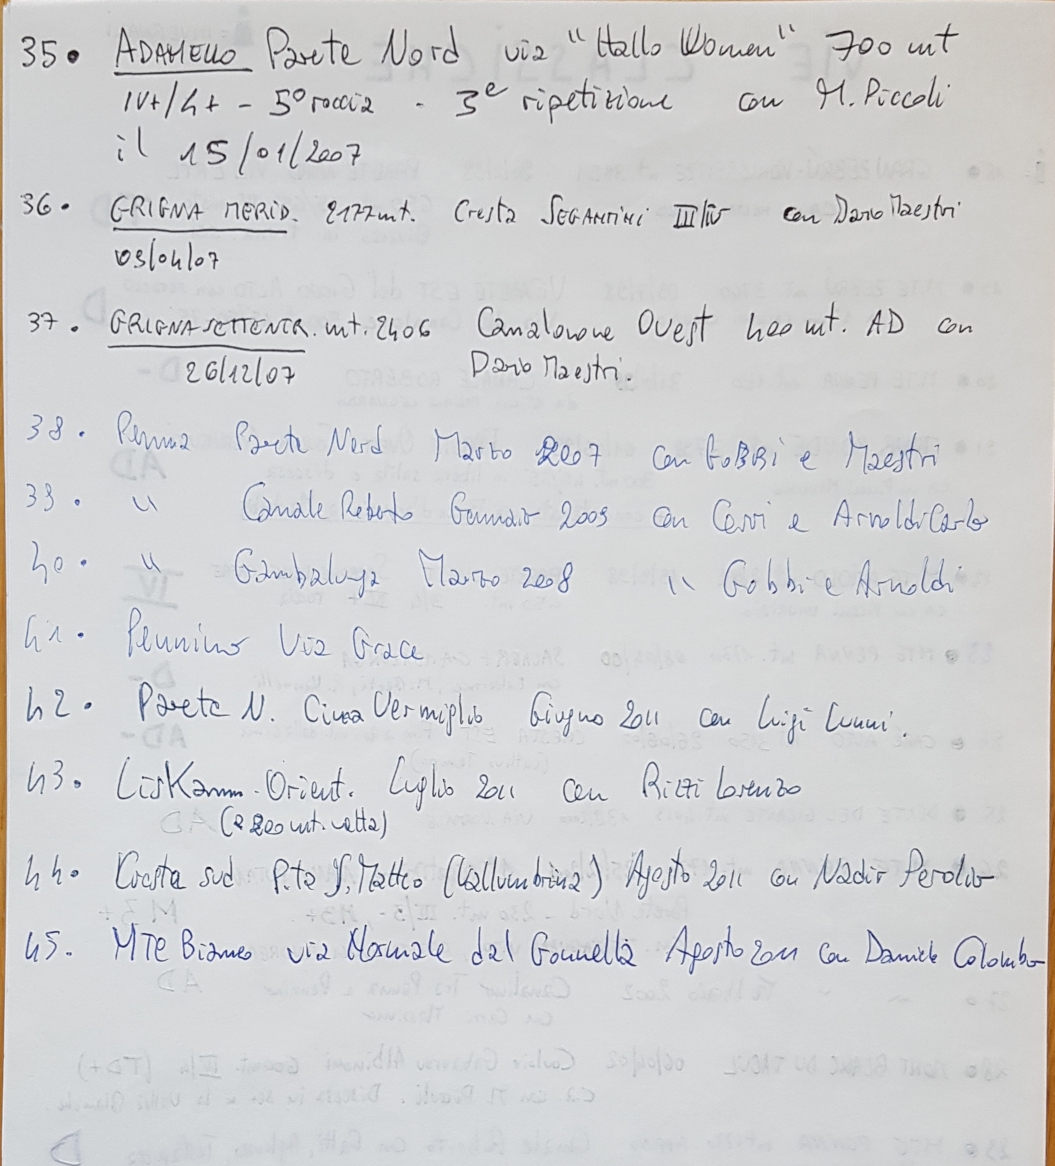 35. ADAMELLO Parete Nord via "Hallo Women" 700 mt
IV+/4+ - 5° roccia - 3e ripetizione con M. Piccoli
il 15/01/2007
36. GRIGNA MERID. 2177 mt. Cresta SEGANTINI III/IV con Dario Maestri
09/04/07
37. GRIGNA SETTENTR. mt. 2406 Canalone Ovest 400 mt. AD con
26/12/07 Dario Maestri.
38. Penna Parete Nord Marzo 2007 con GOBBI e Maestri
39. " Canale Roberto Gennaio 2009 con Cervi e Arnoldi Carlo
40. " Gambalunga Marzo 2008 " Gobbi e Arnoldi
41. Pennino Via Grace
42. Parete N. Cima Vermiglio Giugno 2011 con Luigi
43. LisKamm Orient. Luglio 2011 con Lorenzo
(4220 mt. vetta)
44. Cresta sud P.ta S. Matteo (Vallumbrina) Agosto 2011 con Nadir
45. MTE Bianco via Normale dal Gonnella Agosto 2011 con Daniele Colombo